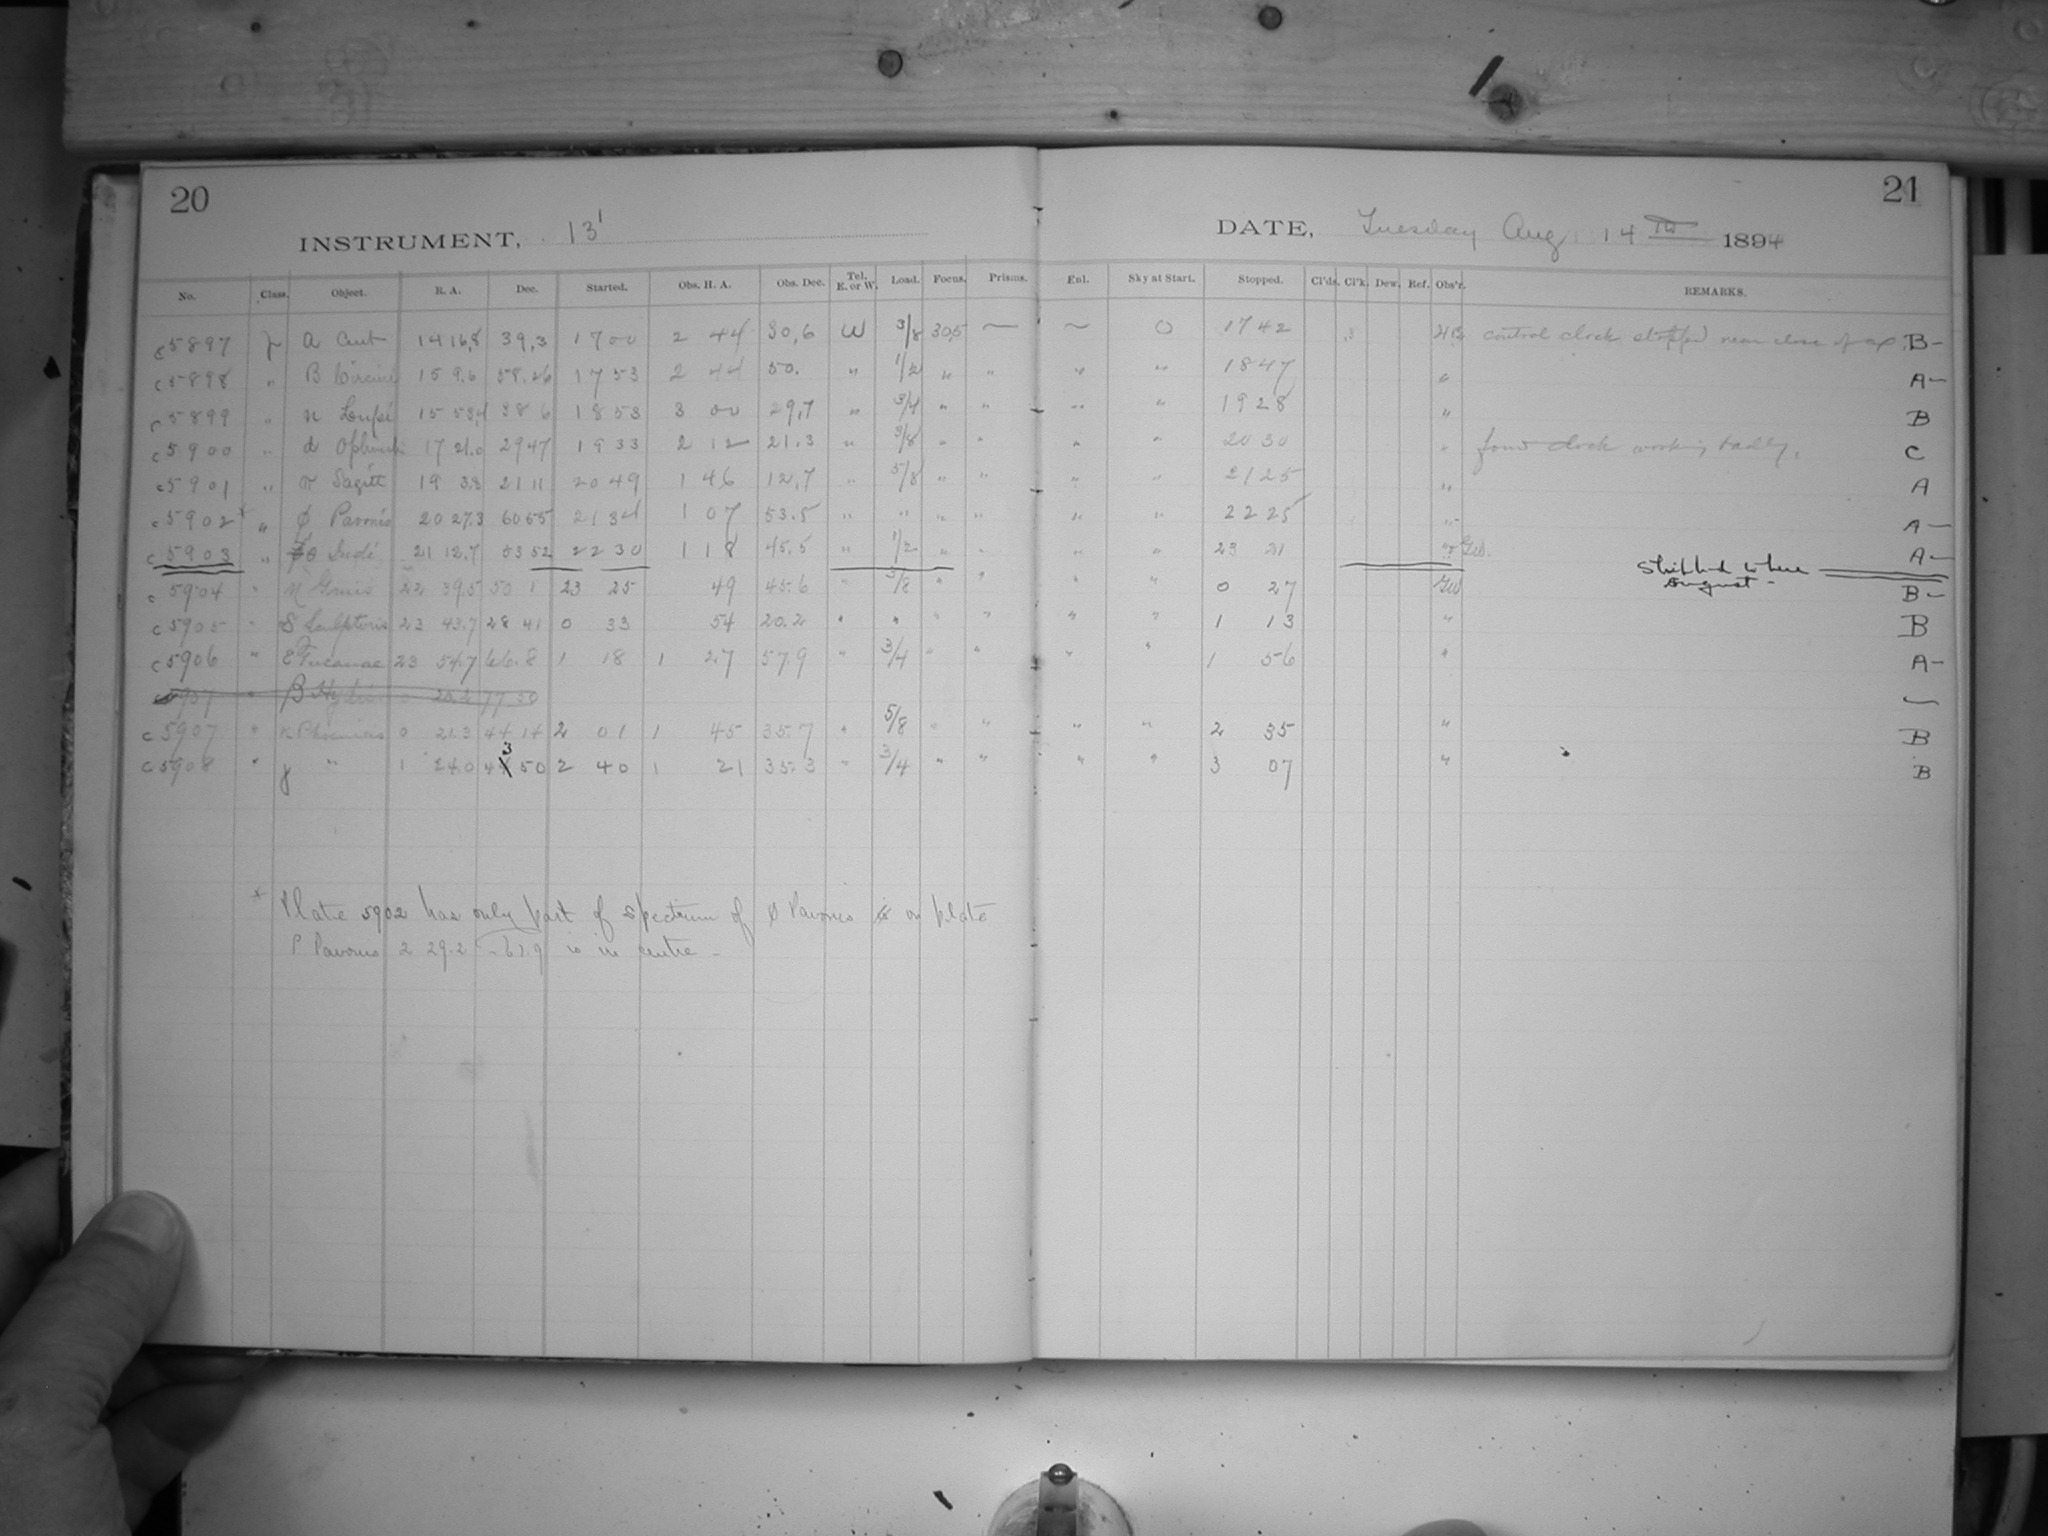 20
21
INSTRUMENT, 13'
DATE, Tuesday Aug 14th 1894
No. Class. Object. R. A. Dec. Started. Obs. H. A. Obs. Dec. Tel. E. or W. Load. Focus. Prisms. Enl. Sky at Start. Stopped. Cl'ds. Cl'k. Dew. Ref. Obs'r. REMARKS.
c 5897 a Cent 14 16,8 39,3 17 00 2 44 30,6 W 3/8 30,5 — ~ 0 17 42 control clock stopped near close of ex. B-
c 5898 " B Circini 15 9.6 58.26 17 53 2 44 50. " 1/2 " " " " 18 47 " A-
c 5899 " n Loupi 15 53,4 38 6 18 53 3 00 29,7 " 3/4 " " " " 19 28 " B
c 5900 " d Ophiuchi 17 21.0 29 47 19 33 2 12 21.3 " 3/8 " " " " 20 30 " found clock working badly. C
c 5901 " π Sagitt 19 3.8 21 11 20 49 1 46 12,7 " 5/8 " " " " 21 25 " A
c 5902 * " φ Pavonis 20 27.3 60 55 21 34 1 07 53.5 " " " " " " 22 25 " A-
c 5903 " θ Indi 21 12,7 53 52 22 30 1 18 45,5 " 1/2 " " " " 23 21 A-
Shipped where
August -
c 5904 " η Gruis 22 39,5 50 1 23 25 49 45.6 " 3/8 " " " " 0 27 B-
c 5905 " δ Sculptoris 23 43.7 28 41 0 33 54 20.2 " " " " " " 1 13 " B
c 5906 " ε Tucanae 23 54.7 66.8 1 18 1 27 57.9 " 3/4 " " " " 1 56 " A-
5907 " β Hydri 77.50
c 5907 " κ Phoenicis 0 21.3 44 14 2 01 1 45 35.7 " 5/8 " " " " 2 35 " B
c 5908 " γ " 1 24.0 43 50 2 40 1 21 35.3 " 3/4 " " " " 3 07 " B
* Plate 5902 has only part of spectrum of φ Pavonis on plate
P Pavonis 2 29.2 - 61.9 is in centre -